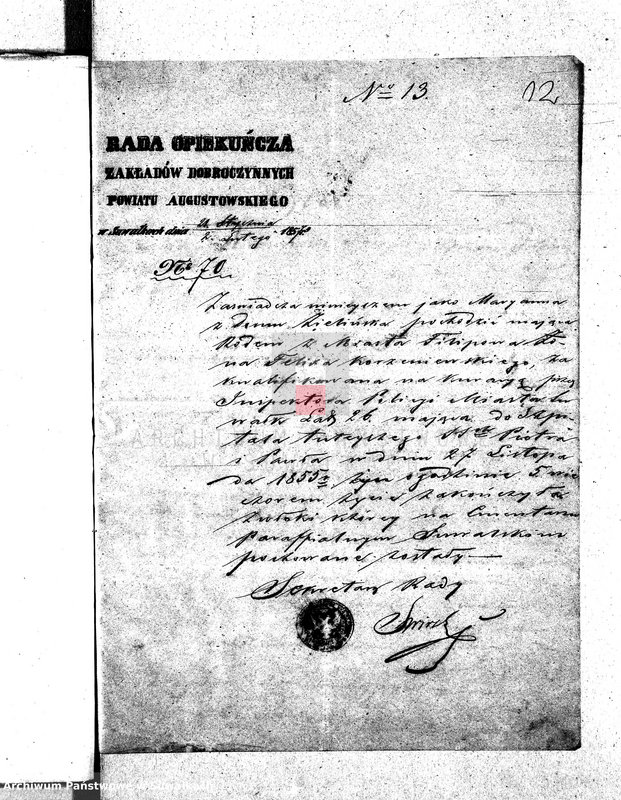 No 13.
12
RADA OPIEKUŃCZA
ZAKŁADÓW DOBROCZYNNYCH
POWIATU AUGUSTOWSKIEGO
w Suwałkach dnia
Stycznia
2. Lutego 185
No 70
Zaświadcza niniejszem jako Maryanna
z domu Zielińska pochodzić mająca
Rodem z Miasta Filipowa Żo
na Felixa Korzeniewskiego, za
kwalifikowana na Kuracyę przez
Inspektora Policyi Miasta Su
wałk Lat 26. mająca do Szpi
tala tutejszego Piotra
i Pawła w dniu 27 Listopa
da 1855 r. o godzinie 5 wie
czorem życie zakończyła
Zwłoki której na Cmentarzu
Paraffialnym Suwalskim
pochowane zostały.
Sekretarz Rady
Archiwum Państwowe w Suwałkach